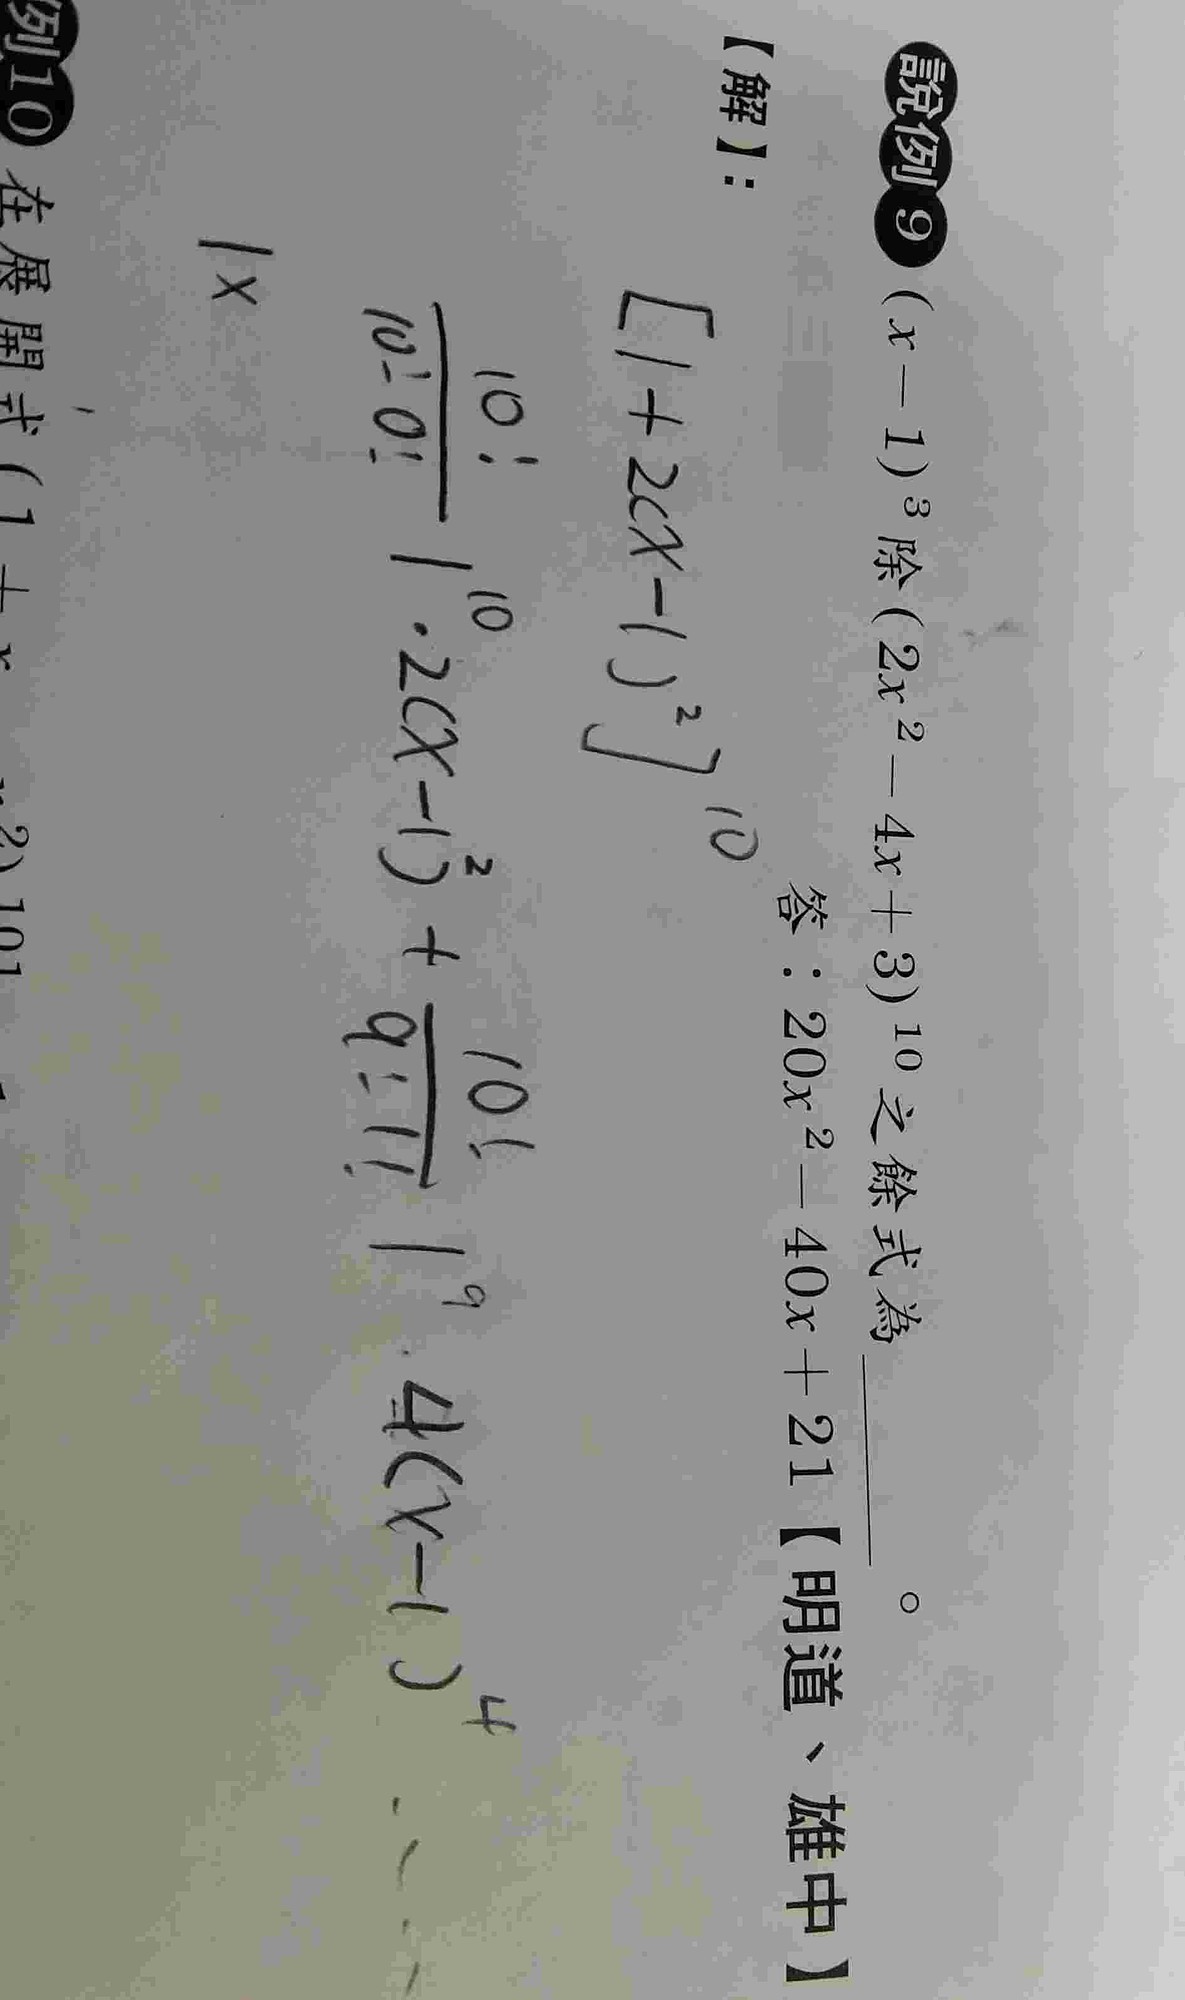 說例9 (x－1)³除(2x²－4x＋3)¹⁰之餘式為＿＿＿＿。
答：20x²－40x＋21【明道、雄中】
【解】：
[1+2(x-1)²]¹⁰
10!/(10! 0!) 1¹⁰·2(x-1)² + 10!/(9! 1!) 1⁹·4(x-1)⁴ ----
1x
例10 在展開式(1＋x